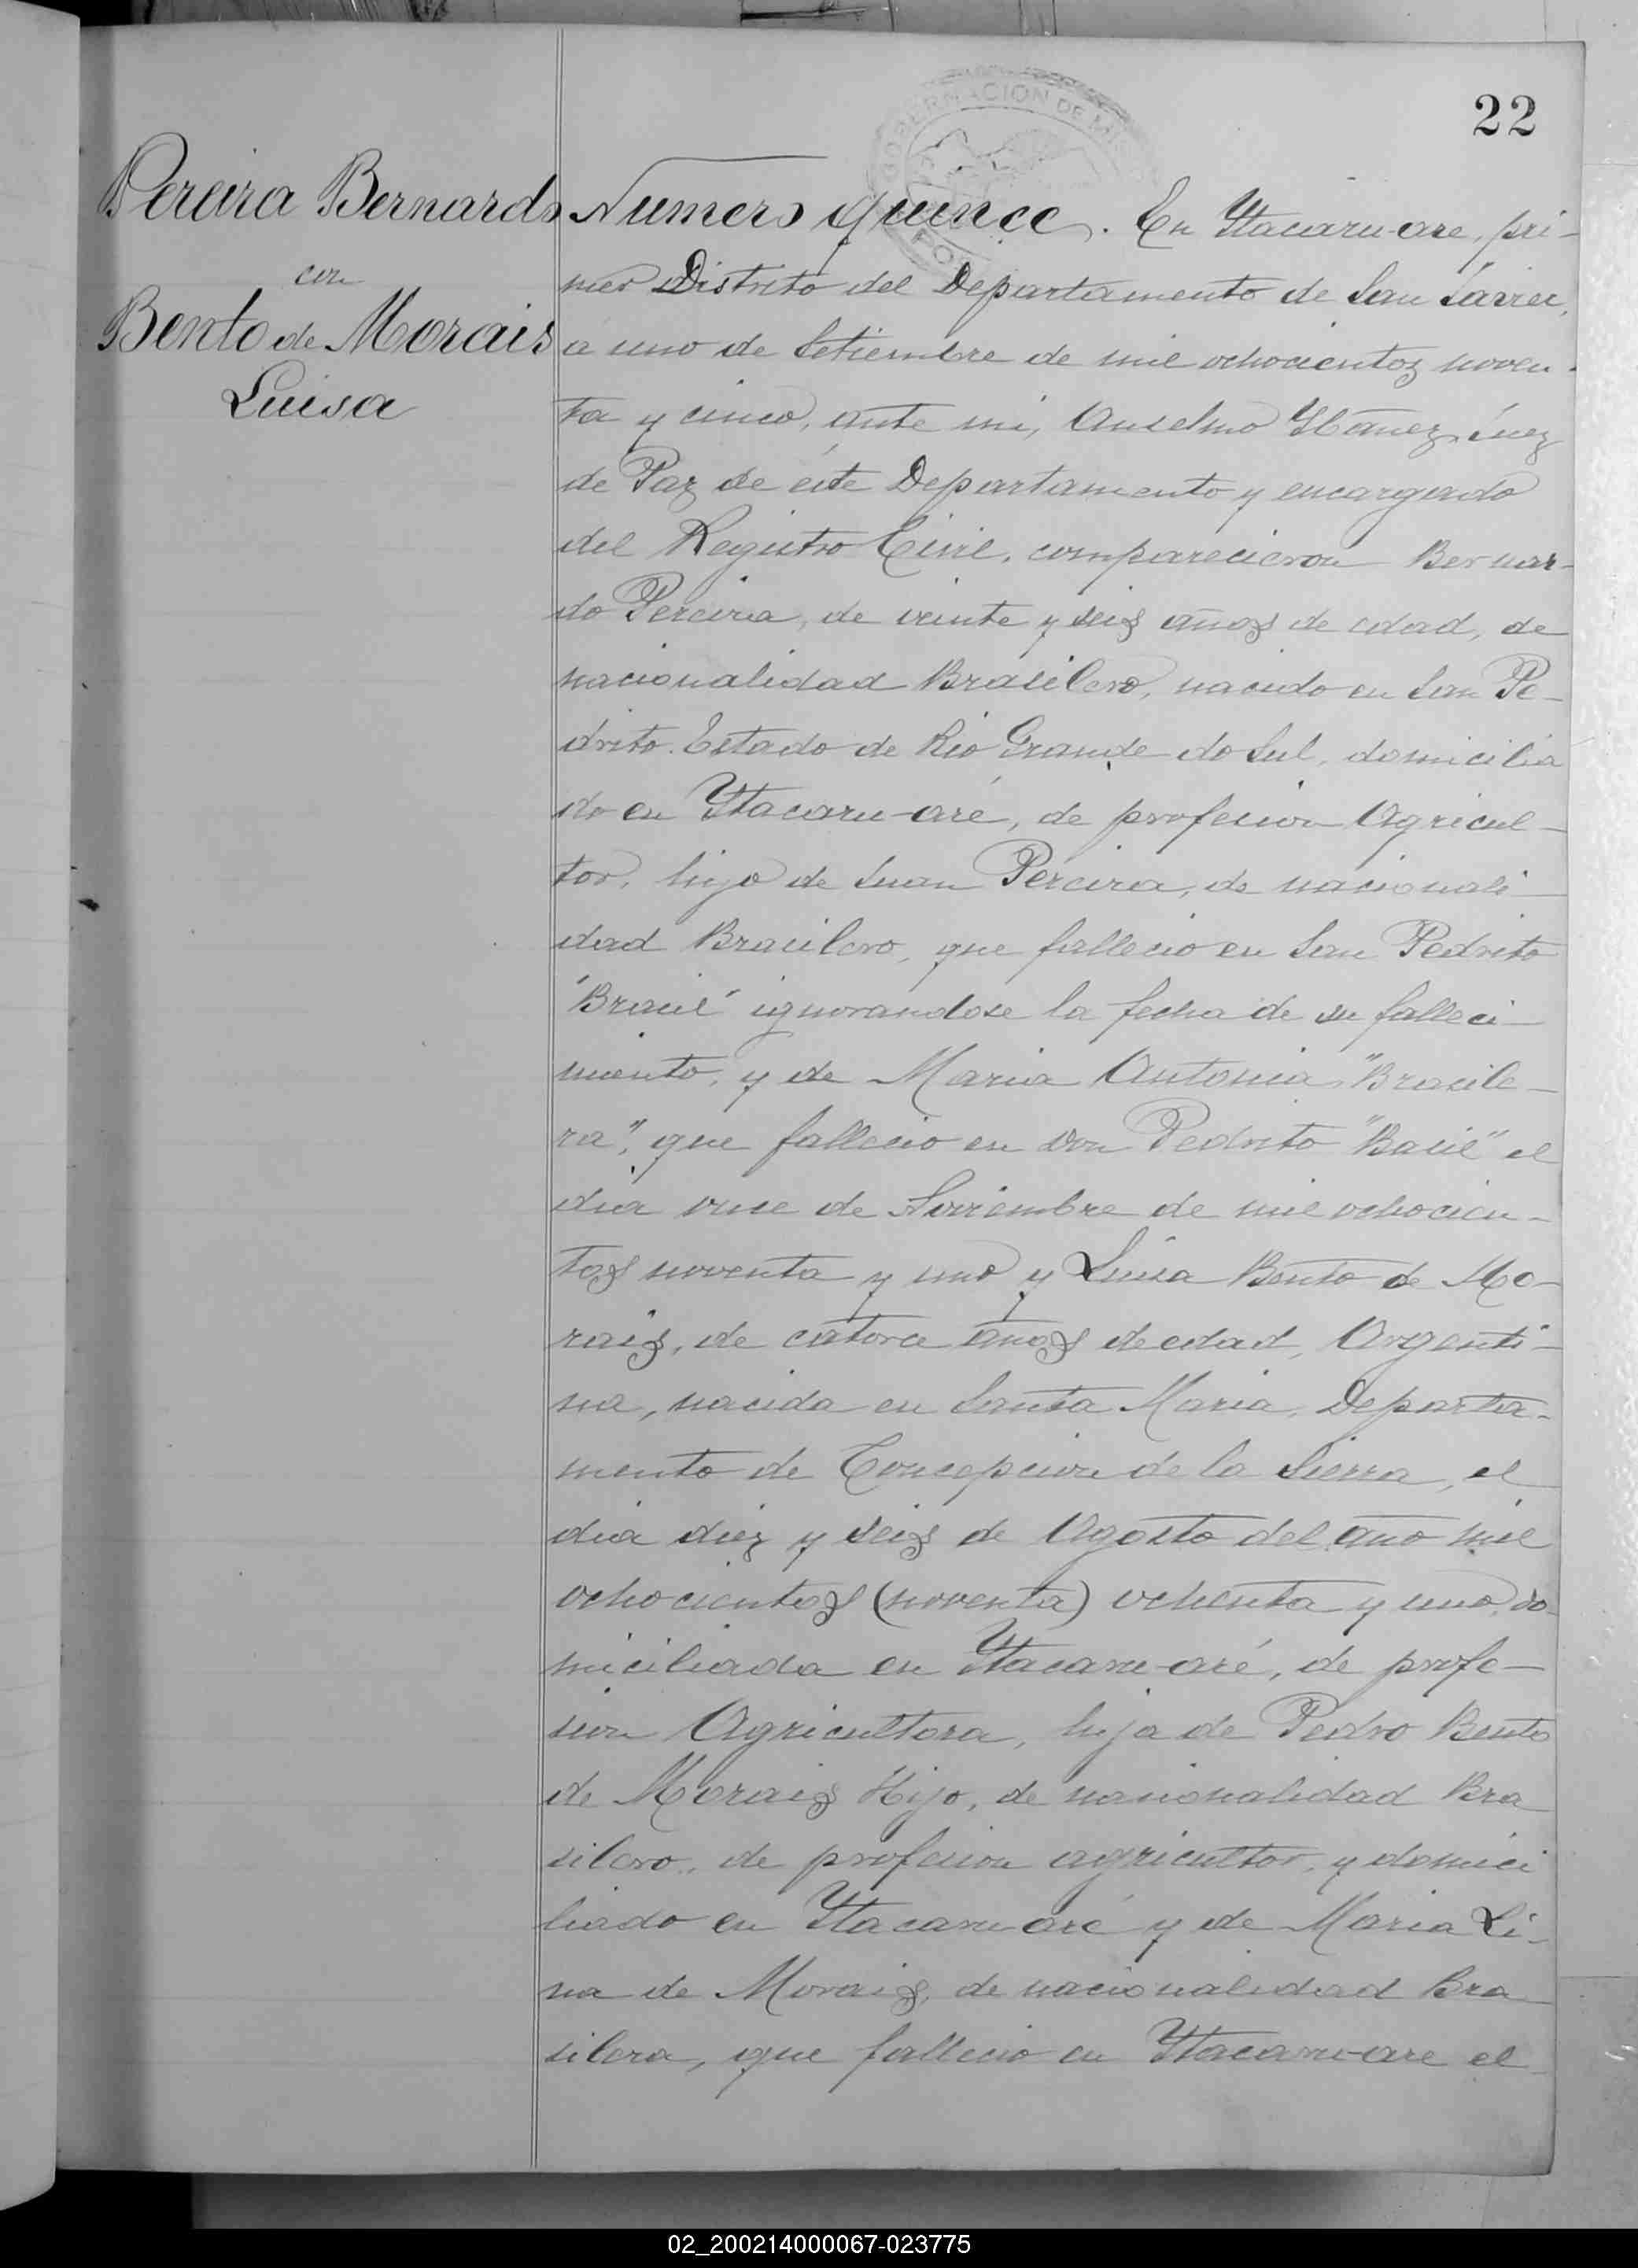 22
GOBERNACION DE MIS
Pereira Bernardo
con
Bento de Morais
Luisa
Numero quince. En Ytacaru-are, pri-
mer Distrito del Departamento de San Javier,
a uno de Setiembre de mil ochocientos noven-
ta y cinco, ante mi, Anselmo Ybañez, Juez
de Paz de éste Departamento y encargado
del Registro Civil, comparecieron Bernar-
do Pereira, de veinte y seis años de edad, de
nacionalidad Brasilero, nacido en San Pe-
drito. Estado de Rio Grande do Sul, domicilia
do en Ytacaru-aré, de profesion Agricul-
tor, hijo de Juan Pereira, de nacionali-
dad Brasilero, que fallecio en San Pedrito
"Brasil" ignorandose la fecha de su falleci-
miento, y de Maria Antonia "Brasile-
ra", que fallecio en Don Pedrito "Basil" el
dia once de Noviembre de mil ochocien-
tos noventa y uno y Luisa Bento de Mo-
rais, de catorce años de edad, Argenti-
na, nacida en Santa Maria, Departa-
mento de Concepcion de la Sierra, el
dia diez y seis de Agosto del año mil
ochocientos (noventa) ochenta y uno, do-
miciliada en Ytacaru-aré, de profe-
sion Agricultora, hija de Pedro Bento
de Morais Hijo, de nacionalidad Bra
silero, de profesion agricultor, y domici
liado en Ytacaru aré y de Maria Li-
na de Morais, de nacionalidad Bra
silera, que fallecio en Ytacaru-are el
02_200214000067-023775